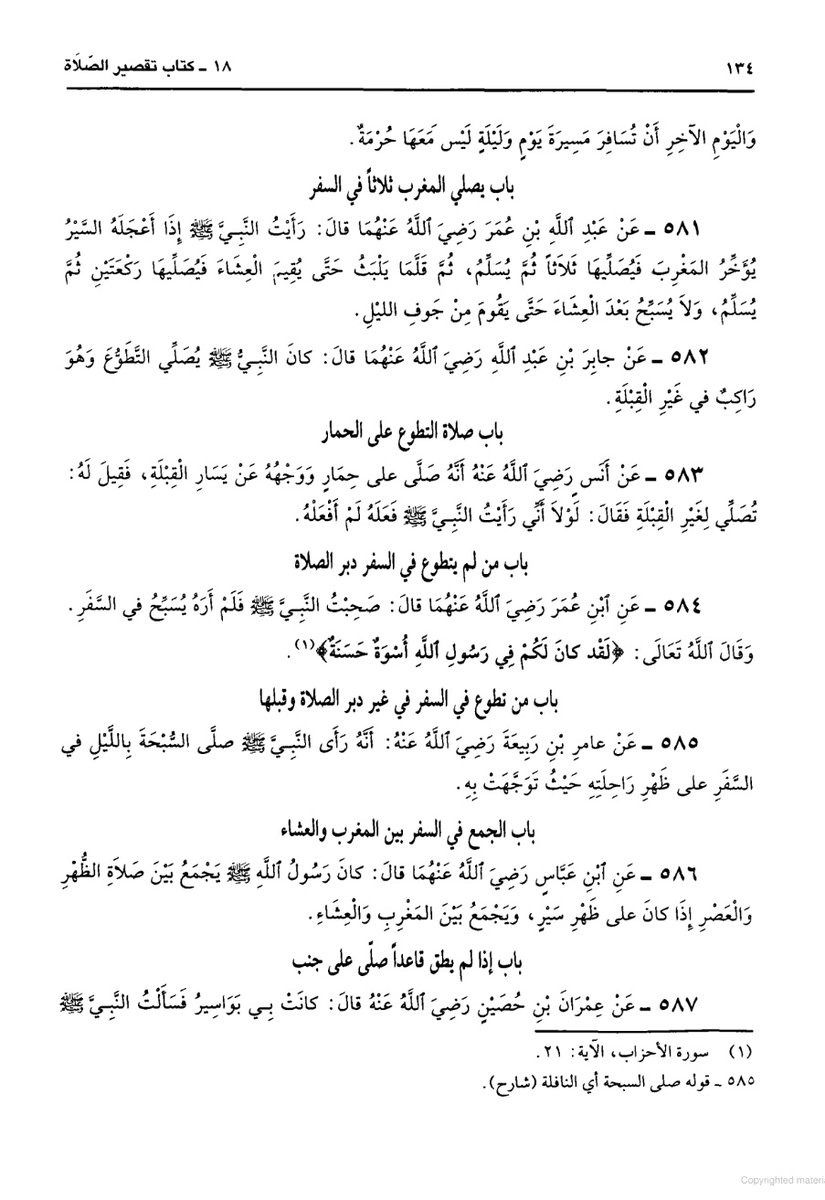 ١٣٤
١٨ ـ كتاب تقصير الصّلَاة
وَالْيَوْمِ الآخِرِ أَنْ تُسَافِرَ مَسِيرَةَ يَوْمٍ وَلَيْلَةٍ لَيْسَ مَعَهَا حُرْمَةٌ.
باب يصلي المغرب ثلاثاً في السفر
٥٨١ ـ عَنْ عَبْدِ ٱللَّهِ بْنِ عُمَرَ رَضِيَ ٱللَّهُ عَنْهُمَا قالَ: رَأَيْتُ النَّبِيَّ ﷺ إِذَا أَعْجَلَهُ السَّيْرُ
يُؤَخِّرُ المَغْرِبَ فَيُصَلِّيها ثَلاَثاً ثُمَّ يُسَلِّمُ، ثُمَّ قَلَّمَا يَلْبَثُ حَتَّى يُقِيمَ الْعِشَاءَ فَيُصَلِّيهَا رَكْعَتَيْنِ ثُمَّ
يُسَلِّمُ، وَلاَ يُسَبِّحُ بَعْدَ الْعِشَاءَ حَتَّى يَقُومَ مِنْ جَوفِ الليْلِ.
٥٨٢ ـ عَنْ جابِرَ بْنِ عَبْدِ ٱللَّهِ رَضِيَ ٱللَّهُ عَنْهُمَا قالَ: كانَ النَّبِيُّ ﷺ يُصَلِّي التَّطَوُّعَ وَهُوَ
رَاكِبٌ في غَيْرِ الْقِبْلَةِ.
باب صلاة التطوع على الحمار
٥٨٣ ـ عَنْ أَنَسٍ رَضِيَ ٱللَّهُ عَنْهُ أَنَّهُ صَلَّى على حِمَارٍ وَوَجْهُهُ عَنْ يَسَارِ الْقِبْلَةِ، فَقِيلَ لَهُ:
تُصَلِّي لِغَيْرِ الْقِبْلَةِ فَقَالَ: لَوْلاَ أَنِّي رَأَيْتُ النَّبِيَّ ﷺ فَعَلَهُ لَمْ أَفْعَلْهُ.
باب من لم يتطوع في السفر دبر الصلاة
٥٨٤ ـ عَنِ ٱبْنِ عُمَرَ رَضِيَ ٱللَّهُ عَنْهُمَا قالَ: صَحِبْتُ النَّبِيَّ ﷺ فَلَمْ أَرَهُ يُسَبِّحُ في السَّفَرِ.
وَقَالَ ٱللَّهُ تَعَالَى: ﴿لَقَد كانَ لَكُمْ فِي رَسُولِ اللَّهِ أُسْوَةٌ حَسَنَةٌ﴾(١).
باب من تطوع في السفر في غير دبر الصلاة وقبلها
٥٨٥ ـ عَنْ عامرِ بْنِ رَبِيعَةَ رَضِيَ ٱللَّهُ عَنْهُ: أَنَّهُ رَأَى النَّبِيَّ ﷺ صلَّى السُّبْحَةَ بِاللَّيْلِ في
السَّفَرِ على ظَهْرِ رَاحِلَتِهِ حَيْثُ تَوَجَّهَتْ بِهِ.
باب الجمع في السفر بين المغرب والعشاء
٥٨٦ ـ عَنِ ٱبْنِ عَبَّاسٍ رَضِيَ ٱللَّهُ عَنْهُمَا قالَ: كانَ رَسُولُ ٱللَّهِ ﷺ يَجْمَعُ بَيْنَ صَلاَةِ الظُّهْرِ
وَالْعَصْرِ إِذَا كانَ على ظَهْرِ سَيْرٍ، وَيَجْمَعُ بَيْنَ المَغْرِبِ وَالْعِشَاءِ.
باب إذا لم يطق قاعداً صلّى على جنب
٥٨٧ ـ عَنْ عِمْرَانَ بْنِ حُصَيْنٍ رَضِيَ ٱللَّهُ عَنْهُ قالَ: كانَتْ بِي بَوَاسِيرُ فَسَأَلْتُ النَّبِيَّ ﷺ
(١) سورة الأحزاب، الآية: ٢١.
٥٨٥ ـ قوله صلى السبحة أي النافلة (شارح).